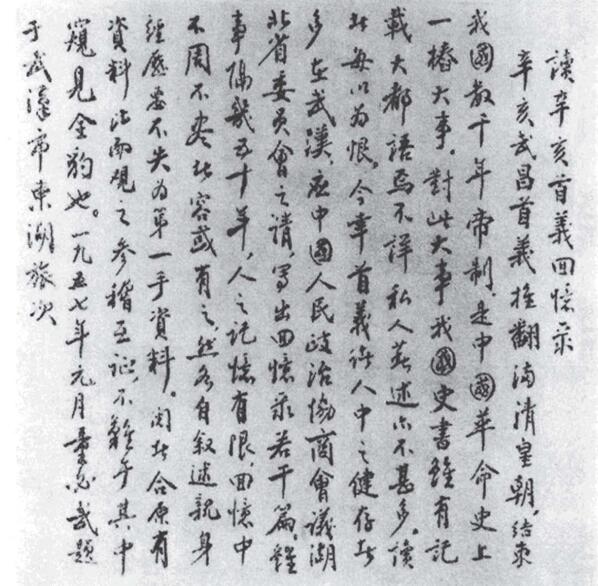 讀辛亥首義回憶录
辛亥武昌首義推翻滿清皇朝，結束
我國數千年帝制，是中國革命史上
一樁大事。對此大事我國史書雖有記
載大都語焉不詳私人著述亦不甚多。讀
者每以为恨。今幸首義諸人中之健存者
多在武漢，應中國人民政治協商會議湖
北省委員會之請，寫出回憶录若干篇。雖
事隔幾五十年，人之記憶有限，回憶中
不周不盡者容或有之，然各自叙述親身
經歷要不失为第一手資料。閱者合原有
資料比而觀之參稽互証，不難于其中
窺見全豹也。一九五七年元月董必武題
于武漢市東湖旅次